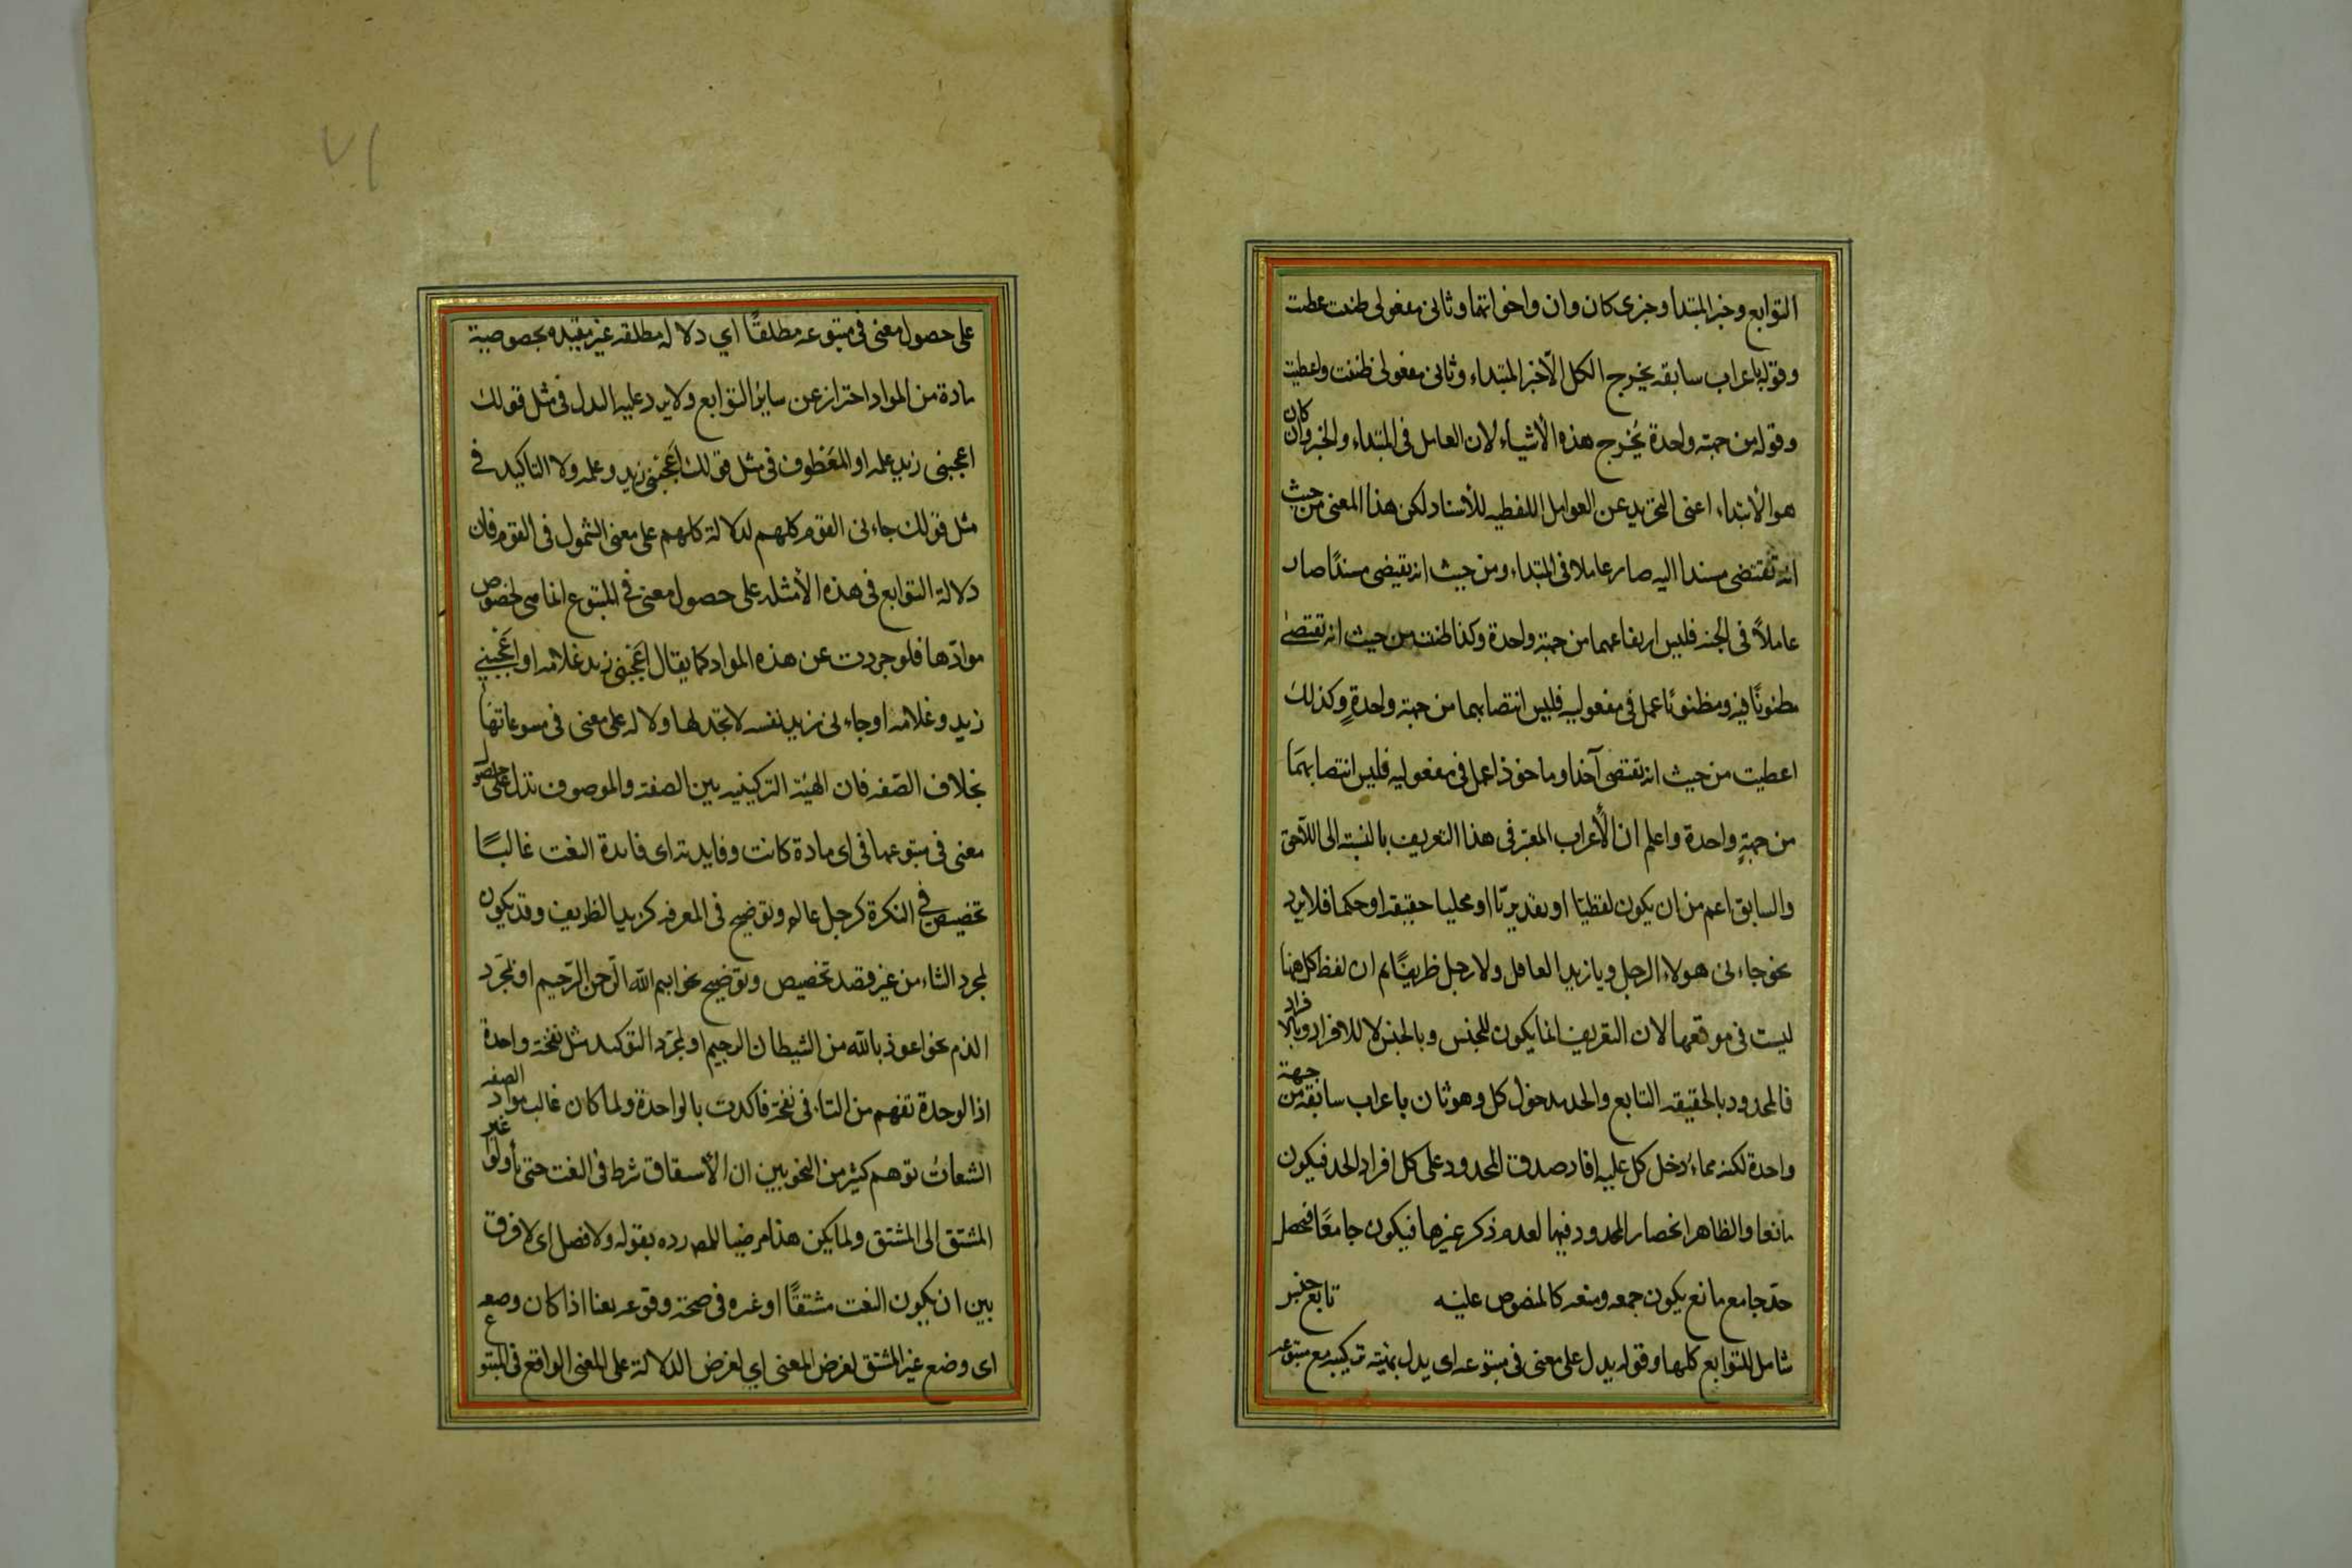 التوابع وخبر المبتدا وخبرى كان وان واخواتها وثانى مفعولى ظننت عطت
وقوله باعراب سابقه يخرج الكل الا خبر المبتداء وثانى مفعولى ظننت واعطيت
وقوله من جهة واحدة يخرج هذه الأشياء لان العامل فى المبتداء والخبر وكان
هو الأبتداء اعنى التجريد عن العوامل اللفظيه للأسناد لكن هذا المعنى من حيث
انه تقتضى مسندا اليه صار عاملا فى المبتداء ومن حيث انه يقتضى مسندًا صار
عاملاً فى الخبر فليس ارتفاعهما من جهة واحدة وكذا ظننت من حيث انه تقتضى
مظنونًا فيه ومظنونًا عمل فى مفعوليه فليس انتصابهما من جهة واحدةٍ وكذلك
اعطيت من حيث انه تقتضى آخذا وماخوذا عمل فى مفعوليه فليس انتصابهما
من جهةٍ واحدة واعلم ان الأعراب المعتبر فى هذا التعريف بالنسبة الى اللاحق
والسابق اعم من ان يكون لفظيًا او تقديريًا او محليا حقيقه او حكما فلا يرد
نحو جاءنى هولاء الرجل ويا زيد العاقل ولا رجل ظريفًا ثم ان لفظ كل ههنا
ليست فى موقعها لان التعريف انما يكون للجنس وبالجنس لا للافراد وبالافراد
فالمحدود بالحقيقه التابع والحد مدخول كل وهو ثان باعراب سابقه من جهة
واحدة لكنه مما دخل كل عليه افاد صدق المحدود على كل افراد الحد فيكون
مانعا والظاهر انحصار المحدود فيها لعدم ذكر غيرها فيكون جامعًا فحصل
حد جامع مانع يكون جمعه ومنعه كالمنصوص عليه تابع جنس
شامل للتوابع كلها وقوله يدل على معنى فى متبوعه اى يدل بهيئة تركيبه مع متبوعه
على حصول معنى فى متبوعه مطلقًا اي دلاله مطلقه غير مقيده بخصوصية
مادة من المواد احتراز عن سائر التوابع ولا يرد عليه البدل فى مثل قولك
اعجبنى زيد علمه او المعطوف فى مثل قولك اعجبنى زيد وعلمه ولا التاكيد فى
مثل قولك جاءنى القوم كلهم لدلالة كلهم على معنى الشمول فى القوم فان
دلالة التوابع فى هذه الأمثله على حصول معنى فى المتبوع انما هى لخصوص
موادّها فلو جردت عن هذه المواد كما يقال اعجبنى زيد غلامه او اعجبنى
زيد وغلامه او جاءنى زيد نفسه لا تجد لها دلاله على معنى فى متبوعاتها
بخلاف الصفه فان الهيئة التركيبيه بين الصفة والموصوف تدل على حصول
معنى فى متبوعها فى اى مادة كانت وفايدته اى فائدة النعت غالبًا
تخصيص فى النكرة كرجل عالم وتوضيح فى المعرفه كزيد الظريف وقد يكون
لمجرد الثناء من غير قصد تخصيص وتوضيح نحو ابسم الله الرّحمن الرّحيم او لمجرّد
الذم نحو اعوذ بالله من الشيطان الرجيم او لمجرّد التوكيد مثل نفخة واحدة
اذ الوحدة تفهم من التاء فى نفخة فاكدت بالواحدة ولما كان غالب مواد الصفه
الشعات توهم كثير من النحويين ان الأشتقاق شرط فى النعت حتى تأولوا غير
المشتق الى المشتق ولما يكن هذا مرضيا للمصـ رده بقوله ولا فصل اى لا فرق
بين ان يكون النعت مشتقًا او غيره فى صحة وقوعه نعتا اذا كان وضعه
اى وضع غير المشتق لغرض المعنى اي لغرض الدلالة على المعنى الواقع فى المتبوع